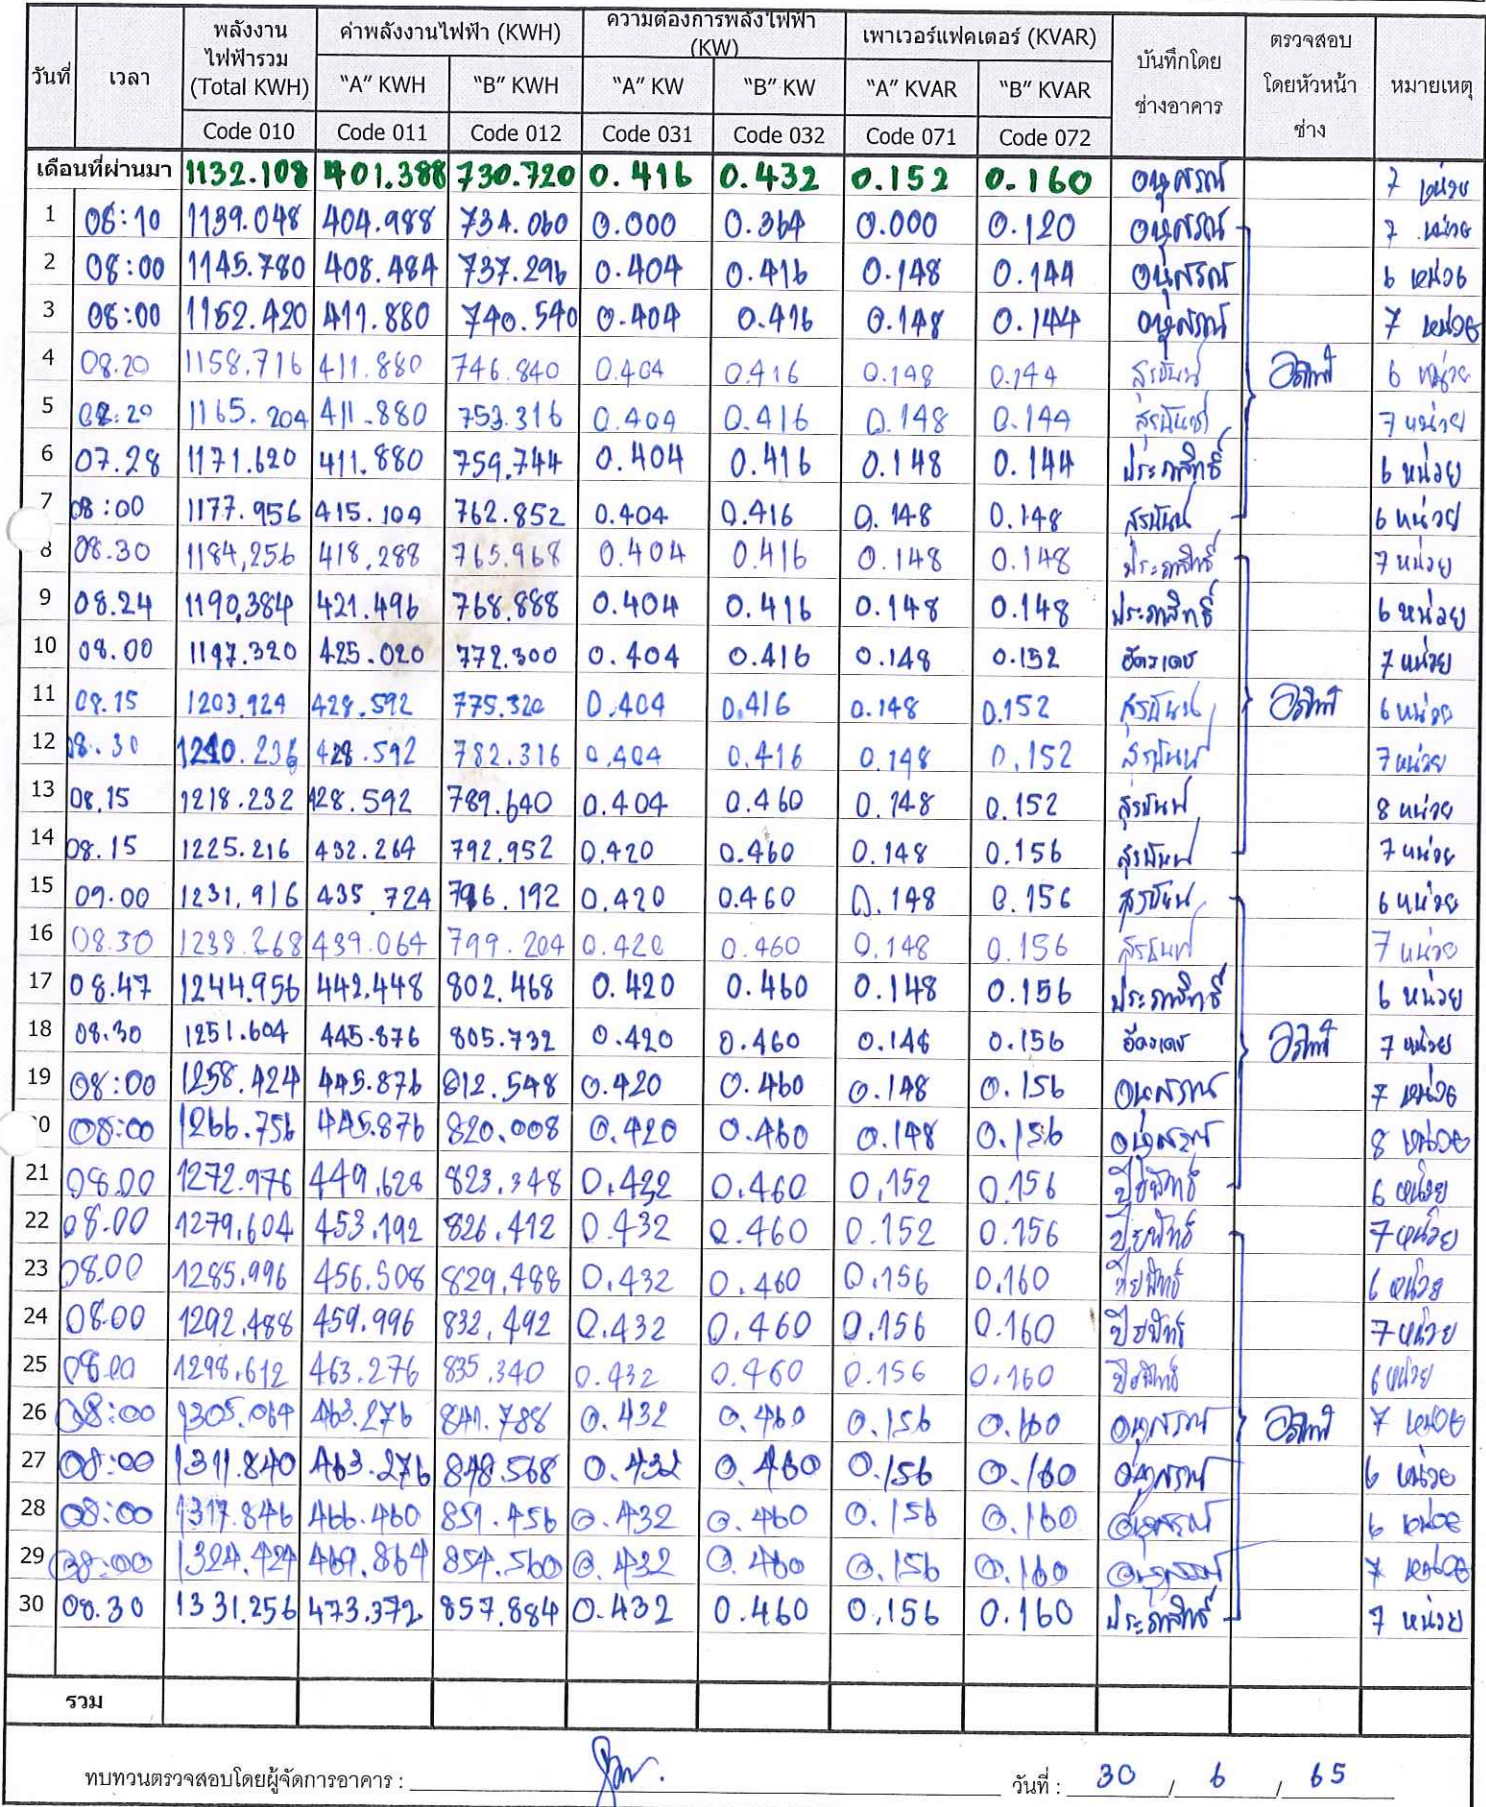 วันที่ เวลา พลังงานไฟฟ้ารวม (Total KWH) ค่าพลังงานไฟฟ้า (KWH) ความต้องการพลังไฟฟ้า (KW) เพาเวอร์แฟคเตอร์ (KVAR) บันทึกโดยช่างอาคาร ตรวจสอบโดยหัวหน้าช่าง หมายเหตุ
"A" KWH "B" KWH "A" KW "B" KW "A" KVAR "B" KVAR
Code 010 Code 011 Code 012 Code 031 Code 032 Code 071 Code 072
เดือนที่ผ่านมา 1132.108 401.388 730.720 0.416 0.432 0.152 0.160 อนุสรณ์ 7 หน่วย
1 08:10 1139.048 404.988 734.060 0.000 0.364 0.000 0.120 อนุสรณ์ 7 หน่วย
2 08:00 1145.780 408.484 737.296 0.404 0.416 0.148 0.144 อนุสรณ์ 6 หน่วย
3 08:00 1152.420 411.880 740.540 0.404 0.416 0.148 0.144 อนุสรณ์ 7 หน่วย
4 08.20 1158.716 411.880 746.840 0.404 0.416 0.148 0.144 6 หน่วย
5 08.20 1165.204 411.880 753.316 0.404 0.416 0.148 0.144 7 หน่วย
6 07.28 1171.620 411.880 759.744 0.404 0.416 0.148 0.144 ประภาสิทธิ์ 6 หน่วย
7 08:00 1177.956 415.104 762.852 0.404 0.416 0.148 0.148 6 หน่วย
8 08.30 1184,256 418,288 765.968 0.404 0.416 0.148 0.148 ประภาสิทธิ์ 7 หน่วย
9 08.24 1190,384 421.496 768.888 0.404 0.416 0.148 0.148 ประภาสิทธิ์ 6 หน่วย
10 08.00 1197.320 425.020 772.300 0.404 0.416 0.148 0.152 อัครเดช 7 หน่วย
11 08.15 1203.924 428.592 775.320 0.404 0.416 0.148 0.152 6 หน่วย
12 08.30 1210.236 428.592 782.316 0.404 0.416 0.148 0.152 7 หน่วย
13 08.15 1218.232 428.592 789.640 0.404 0.460 0.148 0.152 8 หน่วย
14 08.15 1225.216 432.264 792.952 0.420 0.460 0.148 0.156 7 หน่วย
15 09.00 1231,916 435.724 796.192 0.420 0.460 0.148 0.156 6 หน่วย
16 08.30 1238.268 439.064 799.204 0.420 0.460 0.148 0.156 7 หน่วย
17 08.47 1244.956 442.448 802.468 0.420 0.460 0.148 0.156 ประภาสิทธิ์ 6 หน่วย
18 08.30 1251.604 445.876 805.732 0.420 0.460 0.148 0.156 อัครเดช 7 หน่วย
19 08:00 1258.424 445.876 812.548 0.420 0.460 0.148 0.156 อนุสรณ์ 7 หน่วย
20 08:00 1266.756 445.876 820.008 0.420 0.460 0.148 0.156 อนุสรณ์ 8 หน่วย
21 08.00 1272.976 449.628 823.348 0.432 0.460 0,152 0.156 ปิยพัทธ์ 6 หน่วย
22 08.00 1279.604 453.192 826.412 0.432 0.460 0.152 0.156 ปิยพัทธ์ 7 หน่วย
23 08.00 1285.996 456.508 829.488 0.432 0.460 0.156 0.160 ปิยพัทธ์ 6 หน่วย
24 08.00 1292.488 459.996 832,492 0.432 0.460 0.156 0.160 ปิยพัทธ์ 7 หน่วย
25 08.00 1298.612 463.276 835.340 0.432 0.460 0.156 0.160 ปิยพัทธ์ 6 หน่วย
26 08:00 1305.064 463.276 841.788 0.432 0.460 0.156 0.160 อนุสรณ์ 7 หน่วย
27 08:00 1311.840 463.276 848.568 0.432 0.460 0.156 0.160 อนุสรณ์ 6 หน่วย
28 08:00 1317.846 466.460 851.456 0.432 0.460 0.156 0.160 อนุสรณ์ 6 หน่วย
29 08:00 1324.424 469.864 854.560 0.432 0.460 0.156 0.160 อนุสรณ์ 7 หน่วย
30 08.30 1331.256 473.372 857.884 0.432 0.460 0.156 0.160 ประภาสิทธิ์ 7 หน่วย
รวม
ทบทวนตรวจสอบโดยผู้จัดการอาคาร : วันที่ : 30 / 6 / 65